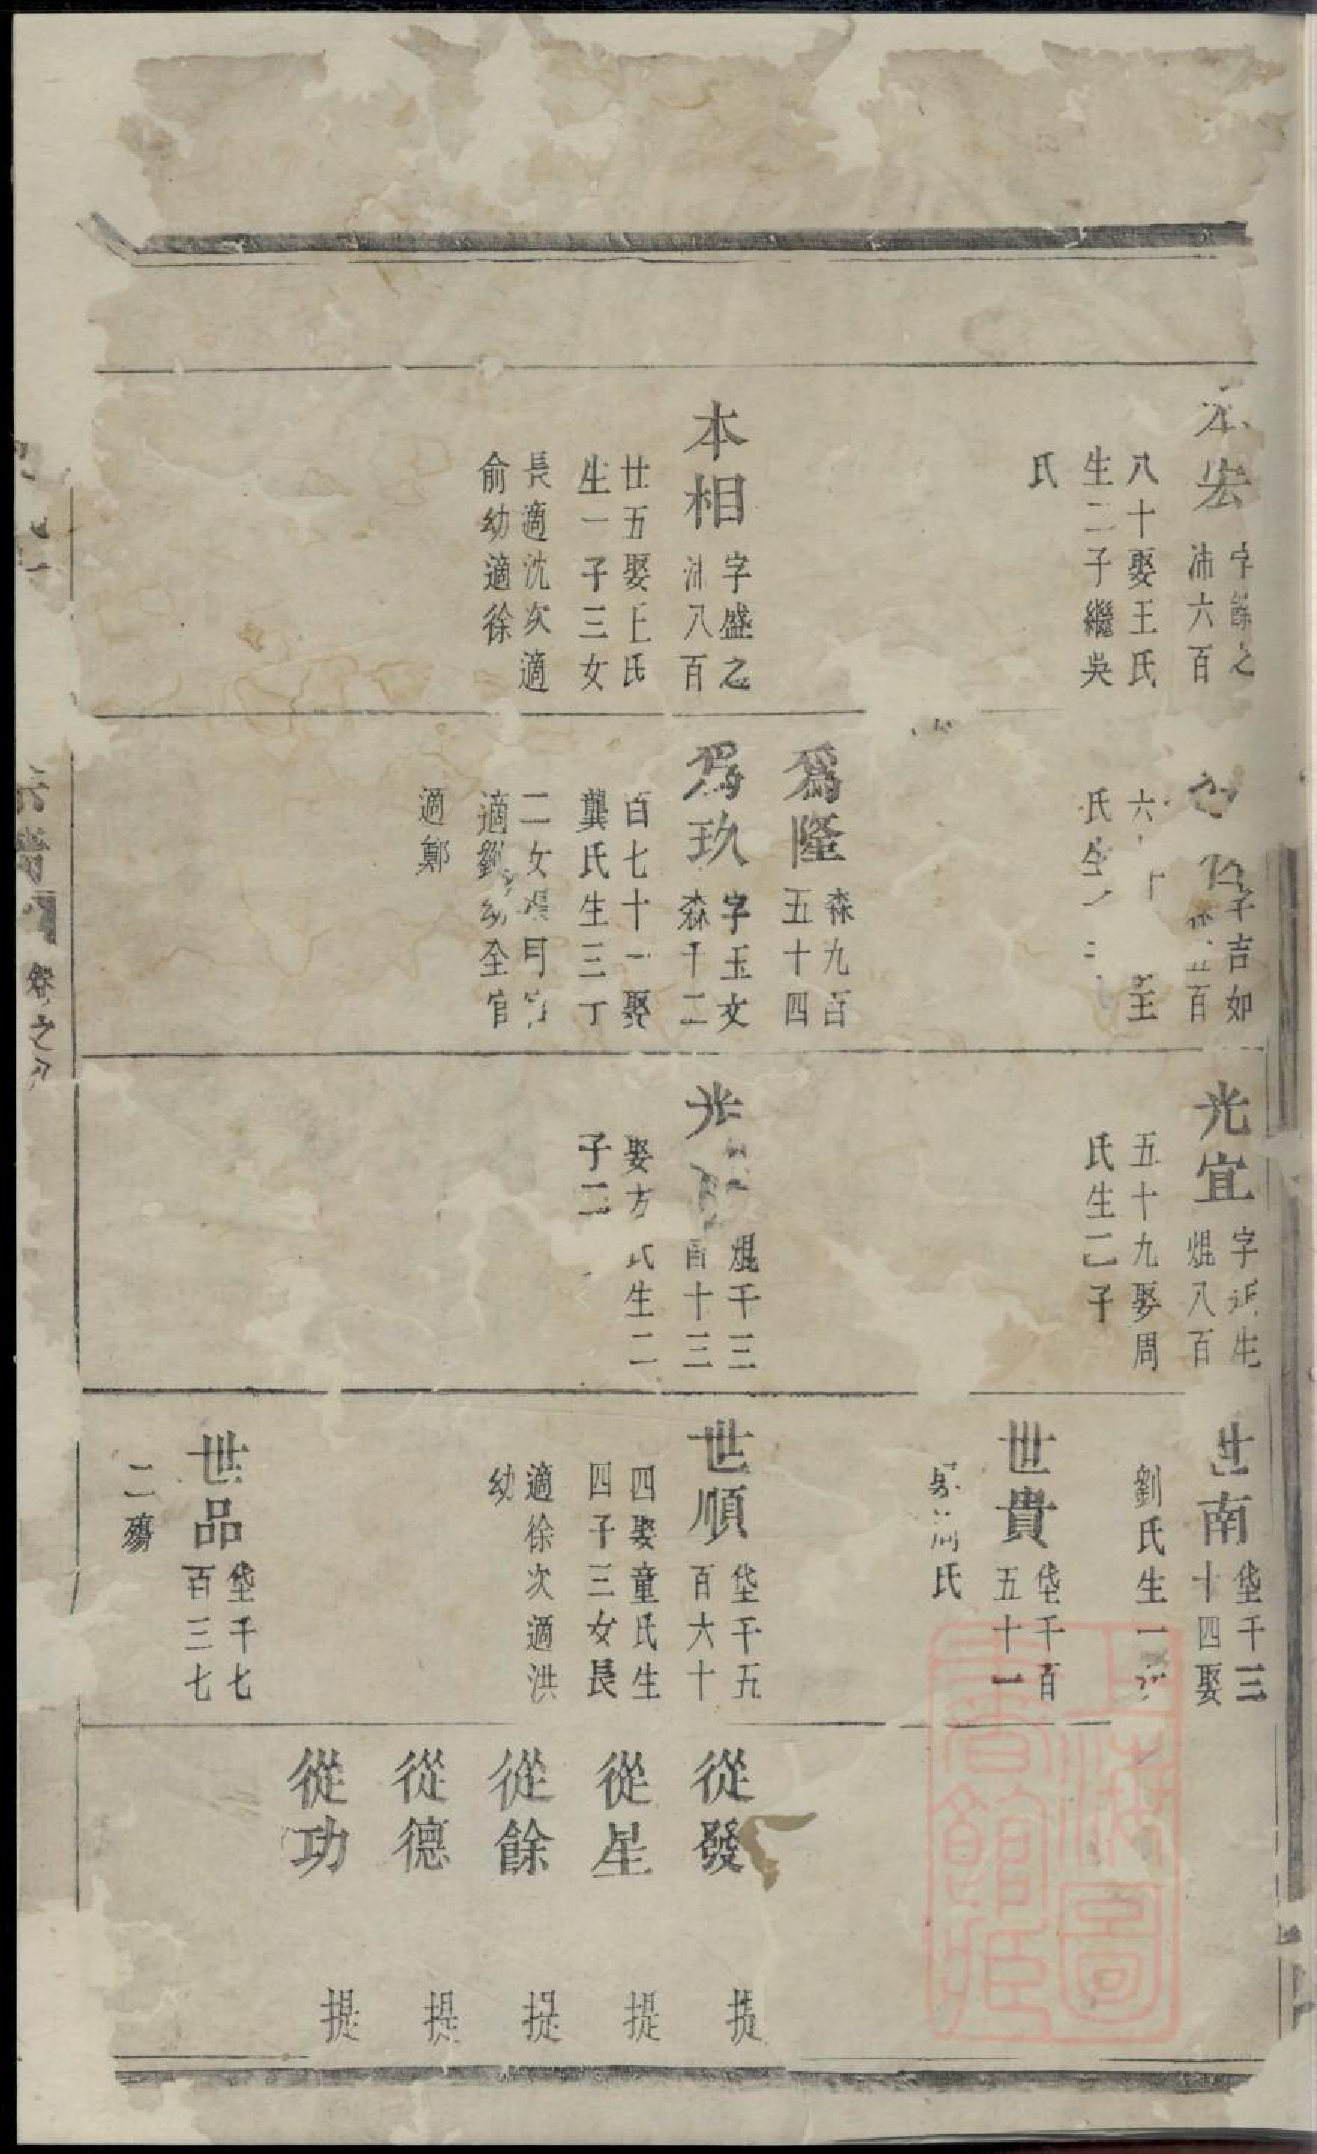 本宏
字餘之
沛六百
八十娶王氏
生二子繼吳
氏
本相
字盛之
沛八百
廿五娶王氏
生一子三女
長適沈次適
俞幼適徐
字吉如
五百
六十
氏生
為隆
森九百
五十四
為玖
字玉文
森千二
百七十一娶
龔氏生三丁
二女
適劉幼全官
適鄭
光宜
字近生
焜八百
五十九娶周
氏生二子
光
焜千三
百十三
娶方氏生二
子二
世南
垡千三
十四娶
劉氏生一子
世貴
垡千百
五十一
娶周氏
世順
垡千五
百六十
四娶童氏生
四子三女長
適徐次適洪
幼
世品
垡千七
百三七
二殤
從發
提
從星
提
從餘
提
從德
提
從功
提
宗譜
卷之
上海圖
書館藏